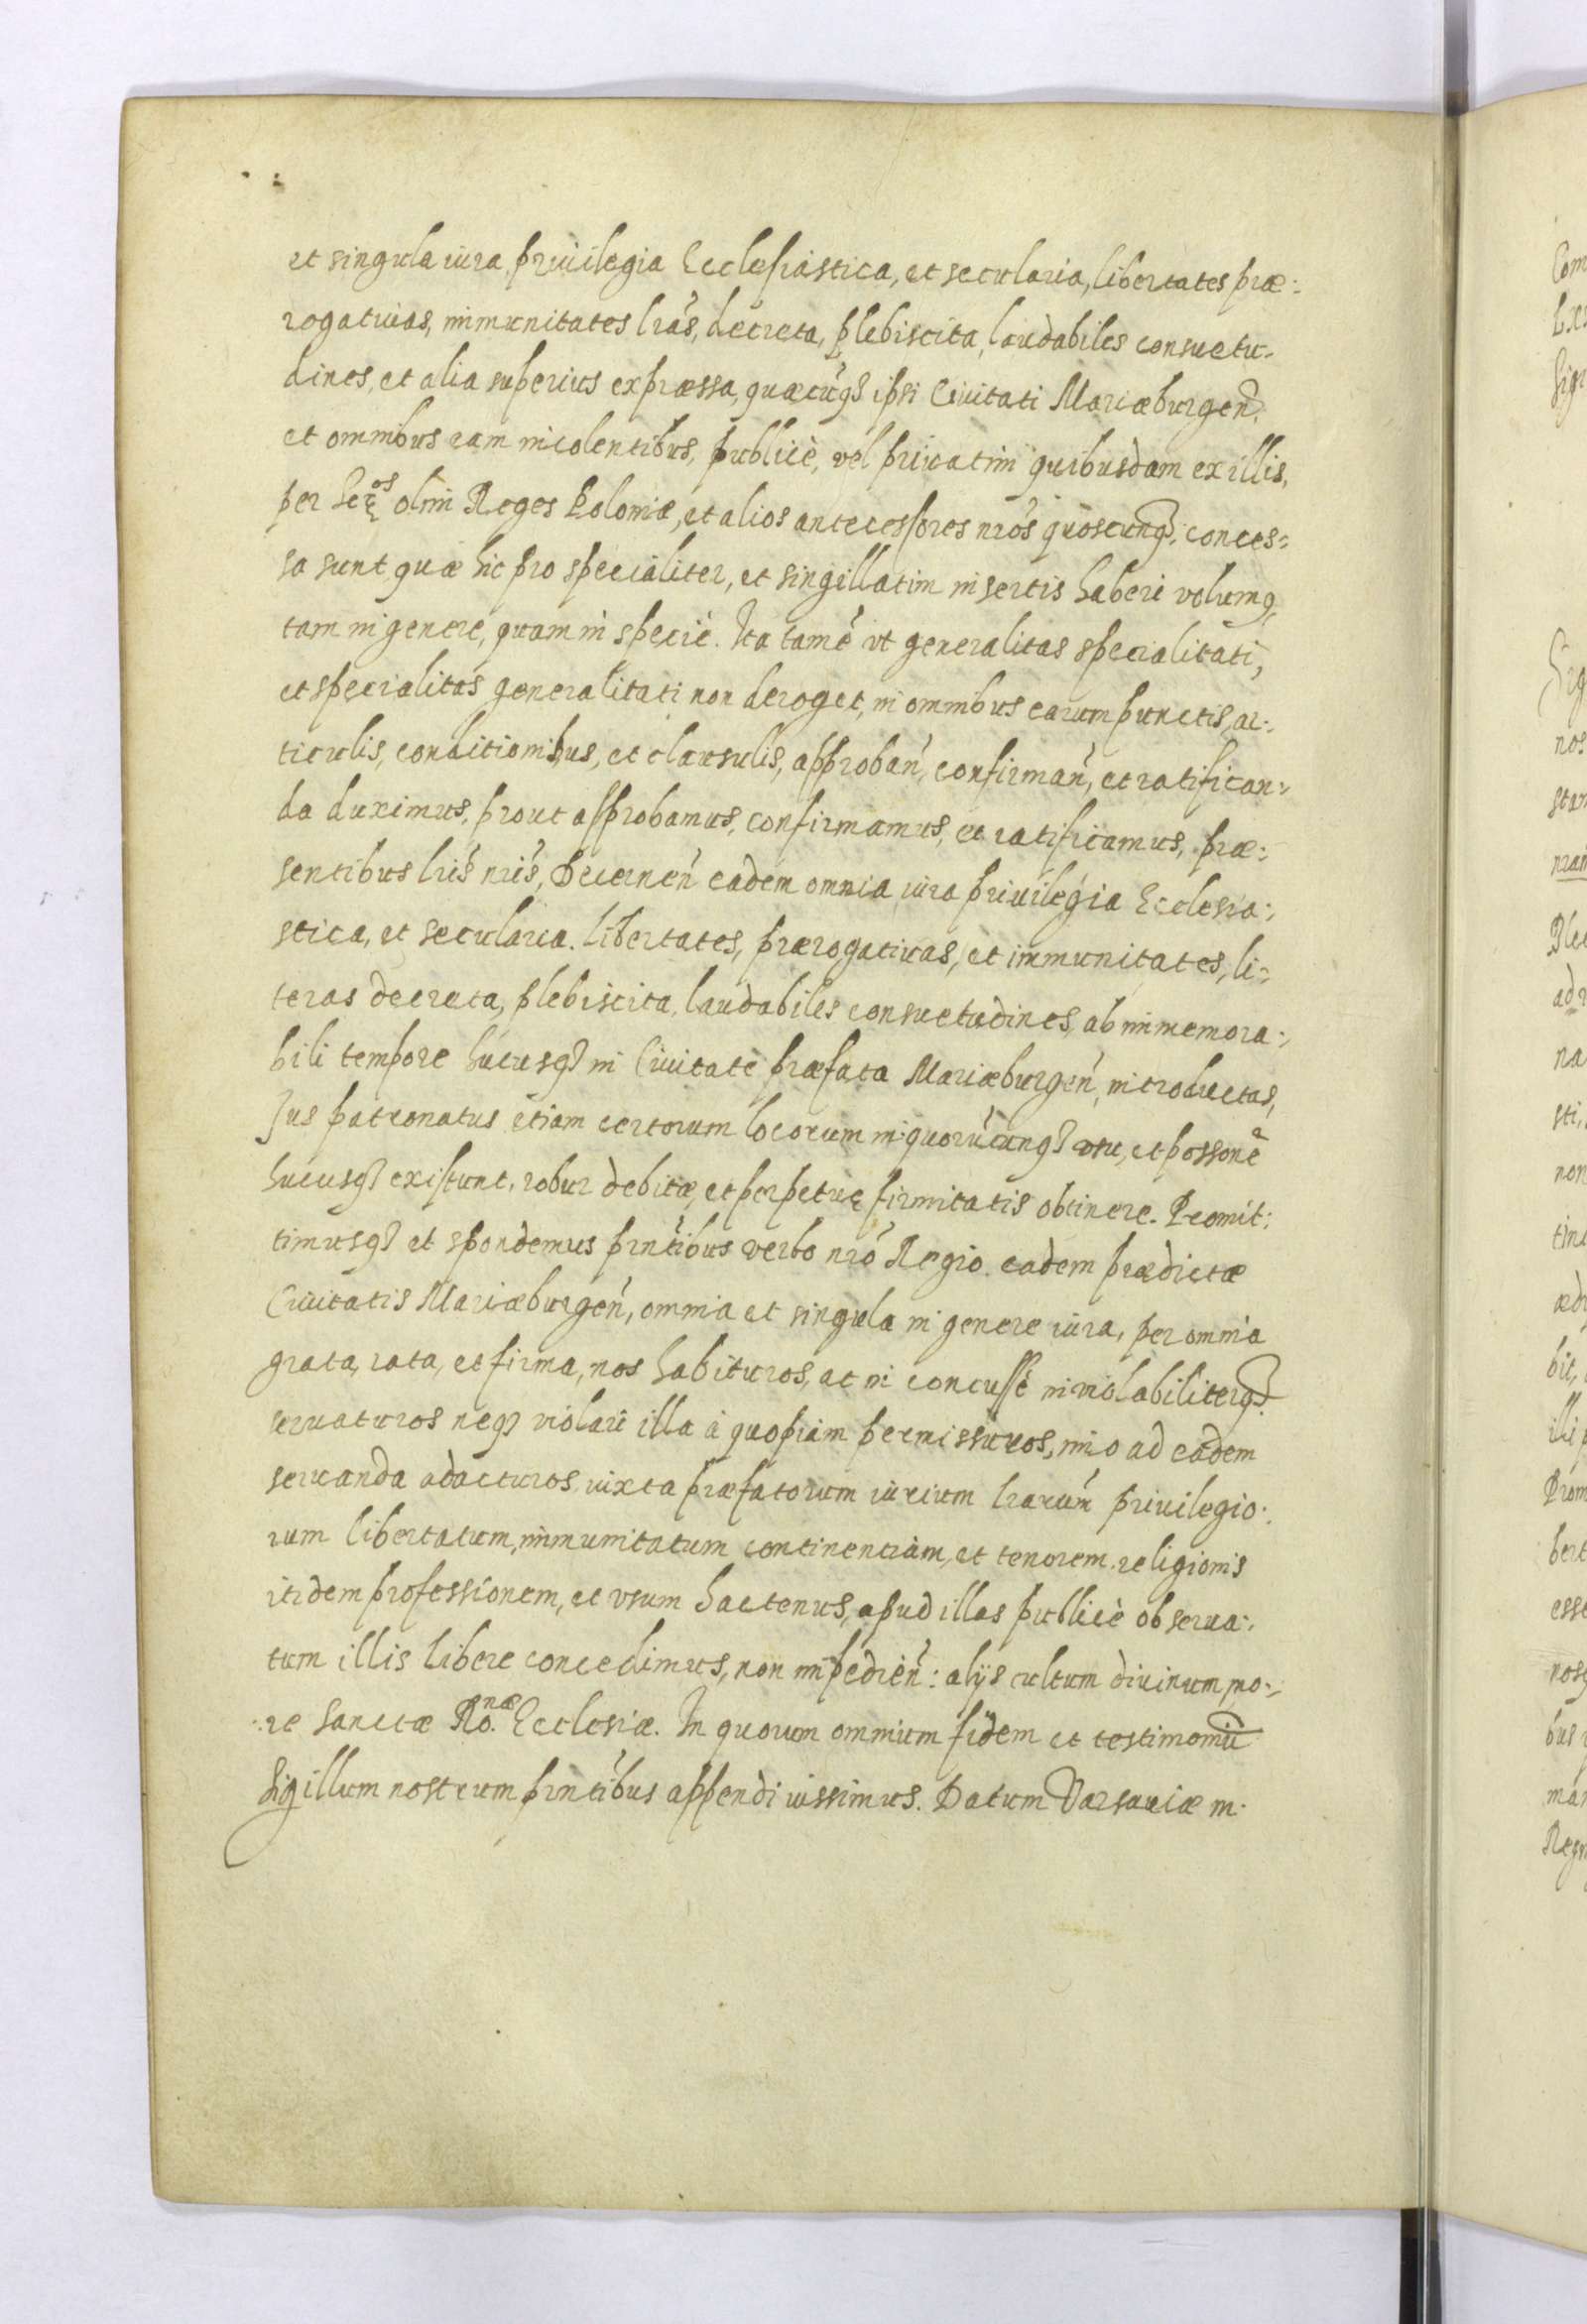 et singula iura, priuilegia Ecclesiastica, et secularia, libertates præ:
rogatiuas, immunitates lrãs, decreta, plebiscita, laudabiles consuetu-
dines, et alia superius expræssa, quæcũq3 ipsi Ciuitati Mariæburgeñ.
et omnibus eam incolentibus, publicè, vel priuatim quibusdam ex illis,
per Seros olim Reges Poloniæ, et alios antecessores nrõs quoscunq3, conces:
sa sunt, quæ hic pro specialiter, et singillatim insertis haberi volumq,
tam in genere, quam in specie. Ita tamẽ vt generalitas specialitati,
et specialitas generalitati non deroget, in omnibus earum punctis, ar:
ticulis, conditionibus, et clausulis, approbañ, confirmañ, et ratifican:
da duximus, prout approbamus, confirmamus, et ratificamus, præ:
sentibus lrĩs nrĩs, Decerneñ eadem omnia iura priuilegia Ecclesia:
stica, et secularia. libertates, prærogatiuas, et immunitates, li:
teras decreta, plebiscita, laudabiles consuetudines, ab immemora:
bili tempore hucusq3 in Ciuitate præfata Mariæburgeñ, introductas,
Jus patronatus etiam certorum locorum in quorũcunq3 vsu, et possonẽ
hucusq3 existunt, robur debitæ, et perpetuę firmitatis obtinere. Promit:
timusq3 et spondemus prntĩbus verbo nrõ Regio. eadem prædictæ
Ciuitatis Mariæburgeñ, omnia et singula in genere iura, per omnia
grata, rata, et firma, nos habituros, ac in concussè inuiolabiliterq3
seruaturos neq3 violari illa à quopiam permissuros, imo ad eadem
seruanda adacturos iuxta præfatorum iurium lrarũm priuilegio:
rum libertatum, immunitatum continentiam, et tenorem. religionis
itidem professionem, et vsum hactenus, apud illas publicè obserua:
tum illis libere concedimus, non impedieñ: alijs cultum diuinum mo:
:re sanctæ Ro.næ Ecclesiæ. In quorum omnium fidem et testimoniũ
Sigillum nostrum prntĩbus appendi iussimus. Datum Varsauiæ in.